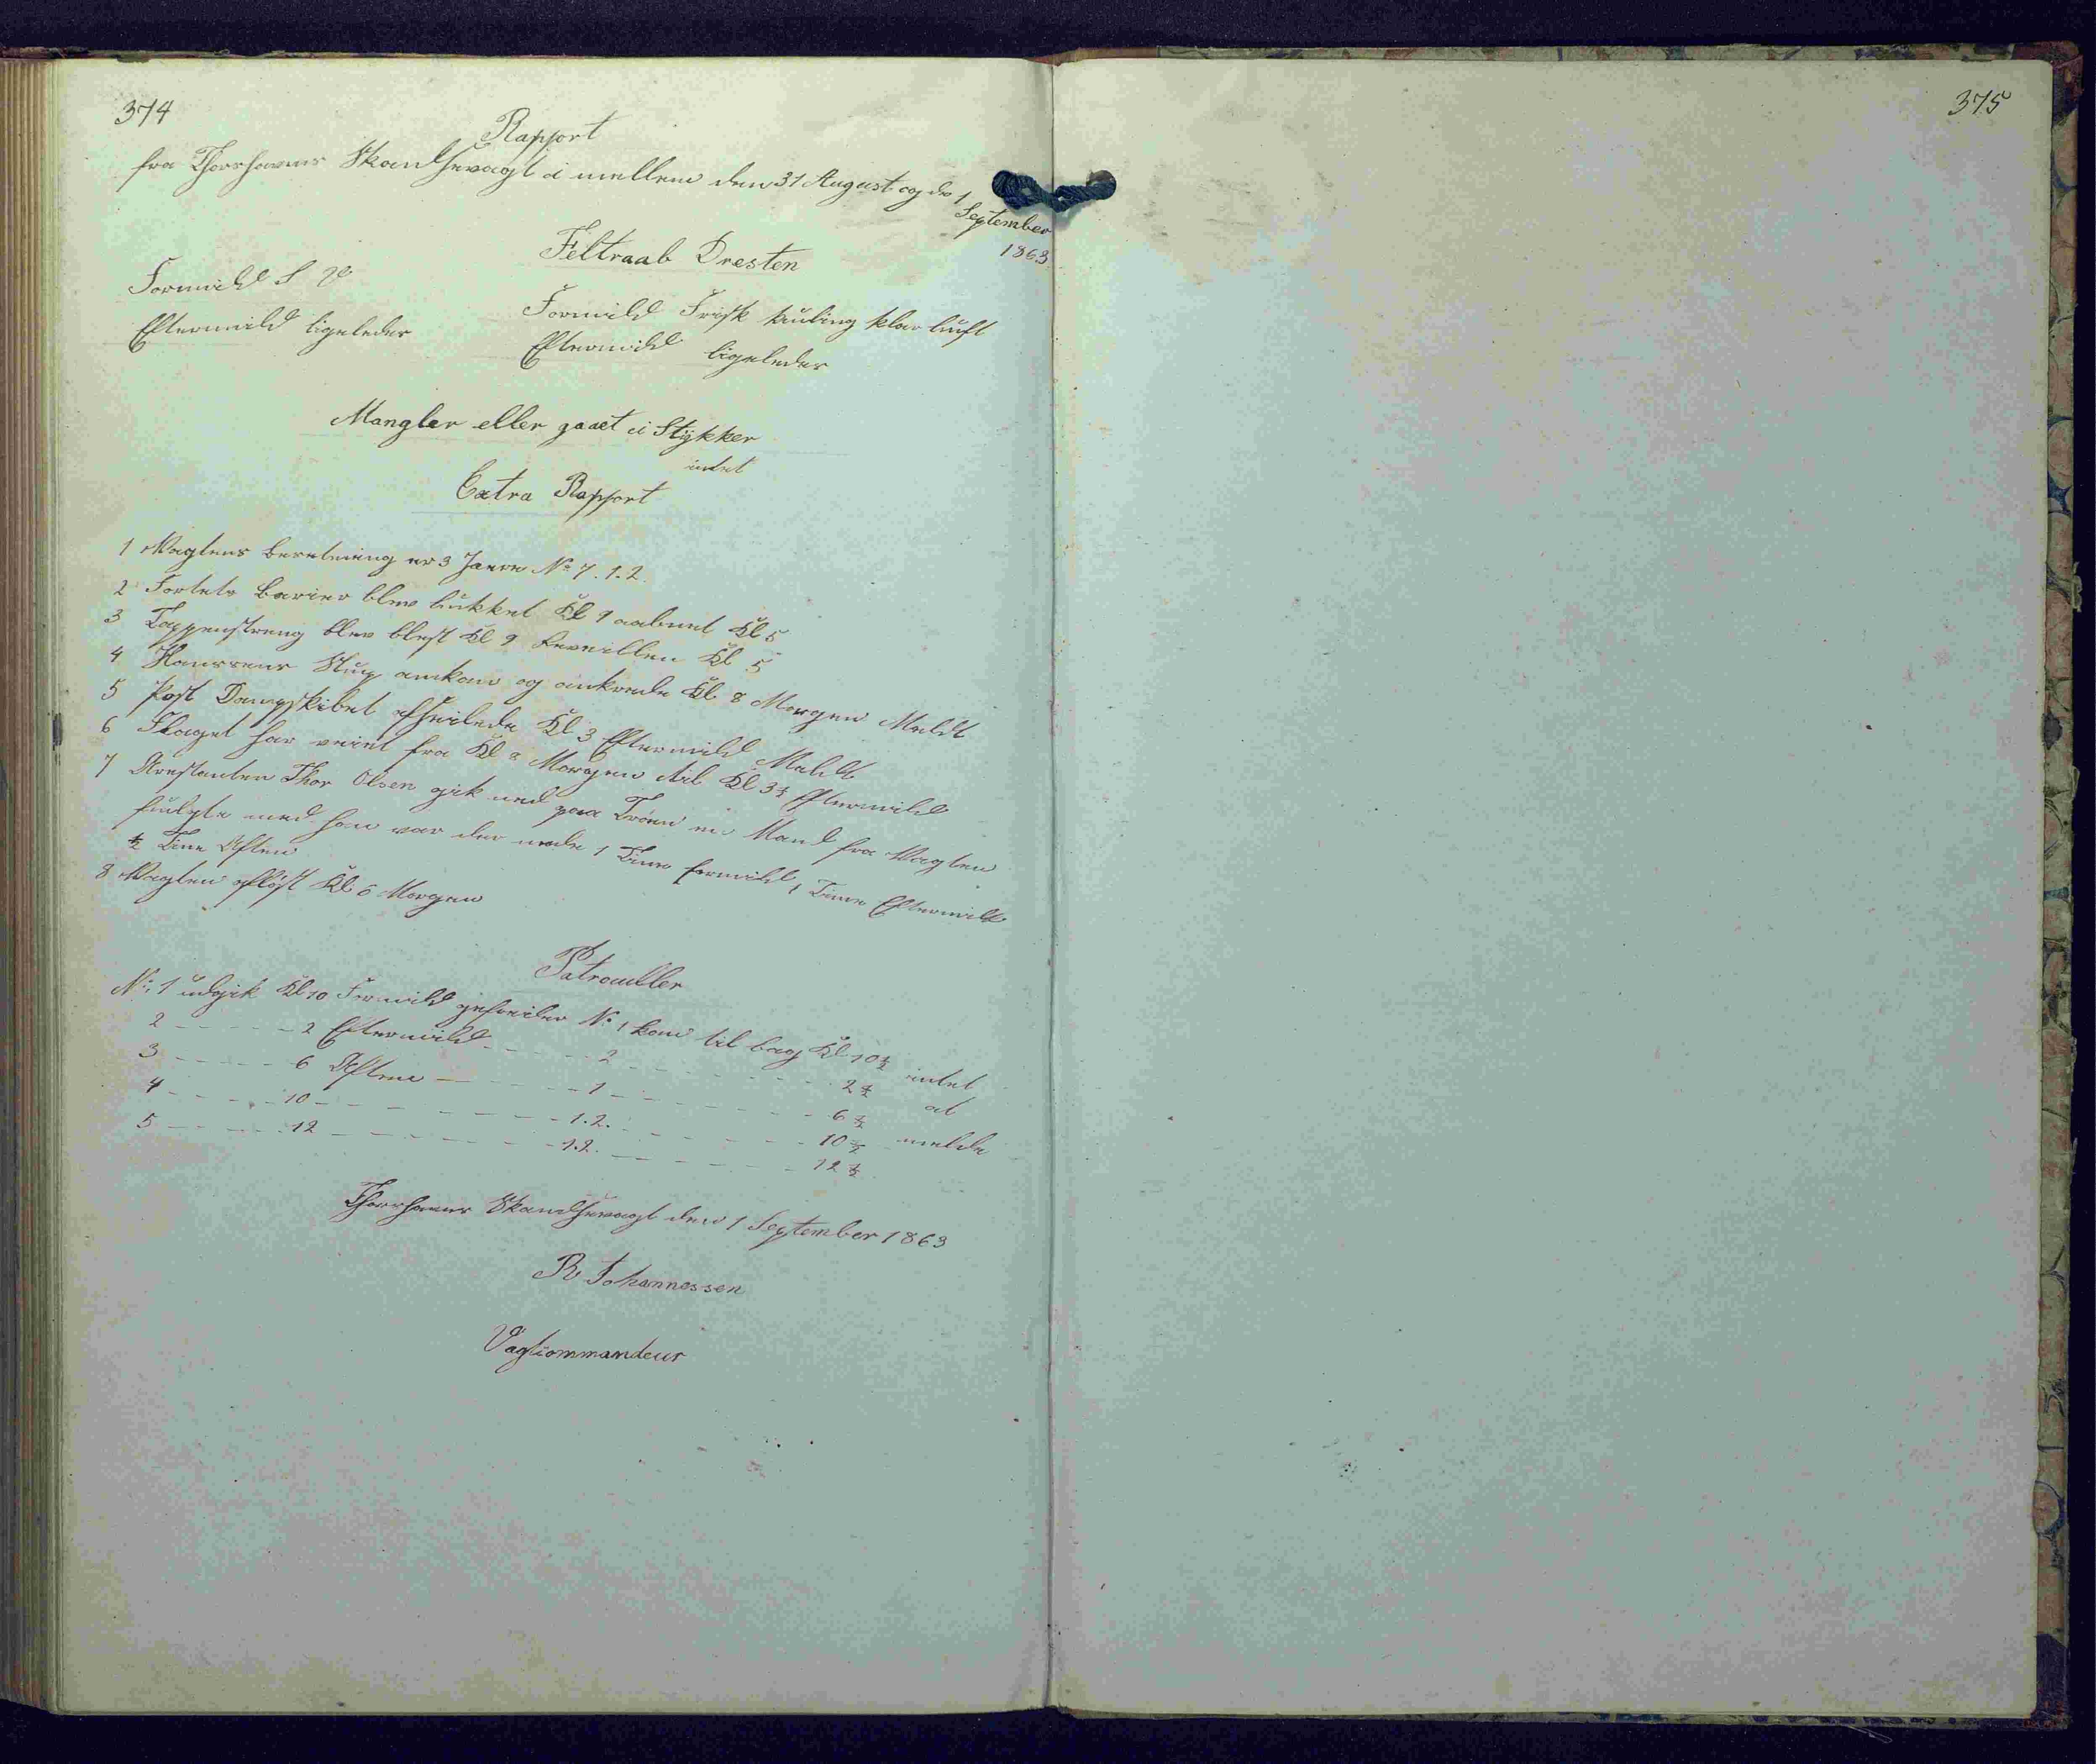 374
Rapport
fra Thorshavns Skandsevagt i mellem den 31 August og de 1
September
1863
Feltraab Dresten
Formidd S V
Eftermidd ligeledes
Formidd Frisk kuling klar luft
Eftermidd ligeledes
Mangler eller gaaet i Stykker
intet
Extra Rapport
1 Vagtens Besetning er 3 Jæere No 7. 1. 2.
2 Fortets Barier blev lukket Kl 9 aabnet Kl 5
3 Tappenstreng blev blest Kl 9 Reveillen Kl 5
4 Hanssens Slup ankom og ankrede Kl 8 Morgen Meldt
5 Post Dampskibet afseilede Kl 3 Eftermidd Meldt
6 Flaget har veiet fra Kl 8 Morgen til Kl 3½ Eftermidd
7 Arestanten Thor Olsen gik ned paa Troen en Mand fra Vagten
fulgte med han var der nede 1 Time formidd 1 Time Eftermidd
½ Time Aften
8 Vagten afløst Kl 6 Morgen
Patrouller
No 1 udgik Kl 10 Formidd gefreider No 1 kom til bag Kl 10½ intet
2 - - - - - 2 Eftermidd - - - - - 2 - - - - - - - 2½ at
3 - - - - - 6 Aften - - - - - - 1 - - - - - - - 6½ melde
4 - - - - - 10 - - - - - - - - - 1.2. - - - - - - - 10½
5 - - - - - 12 - - - - - - - - - 1.2. - - - - - - - 12½
Thorshavns Skandsevagt den 1 September 1863
R Johannessen
Vagtcommandeur
375